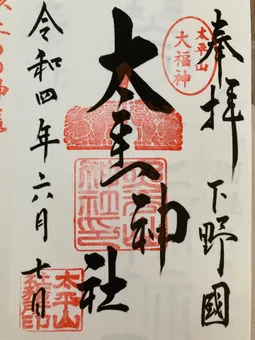 奉拝 下野國
太平山
大福神
太平山神社
令和四年六月七日
太平山